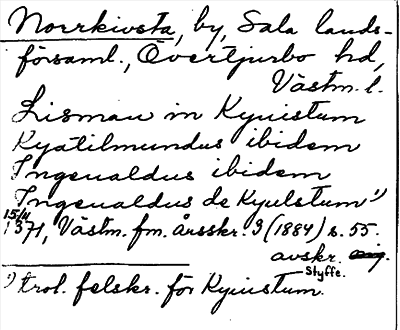 Norrkivsta, by, Sala lands-
församl., Övertjurbo hd,
Västm. l.
Lisman in Kyuistum
Kyätilmundus ibidem
Ingeualdus ibidem
Ingeualdus de Kyulstum¹⁾
15/11
1371, Västm. fm. årsskr. 3 (1884) s. 55.
avskr.
Styffe.
¹⁾ trol. felskr. för Kyuistum.